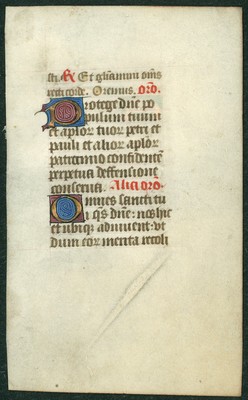 sti. Et gloriamini oms
recti corde. Oremus. orō.
Protege dne po
pulum tuum
et aplor tuor petri et
pauli et alior aplor
patrocinio confidentē
perpetua deffensione
conserua. Alia orō.
Omnes sancti tu
i qs dne: nos hic
et ubiq adiuuent: vt
dum eor merita recoli